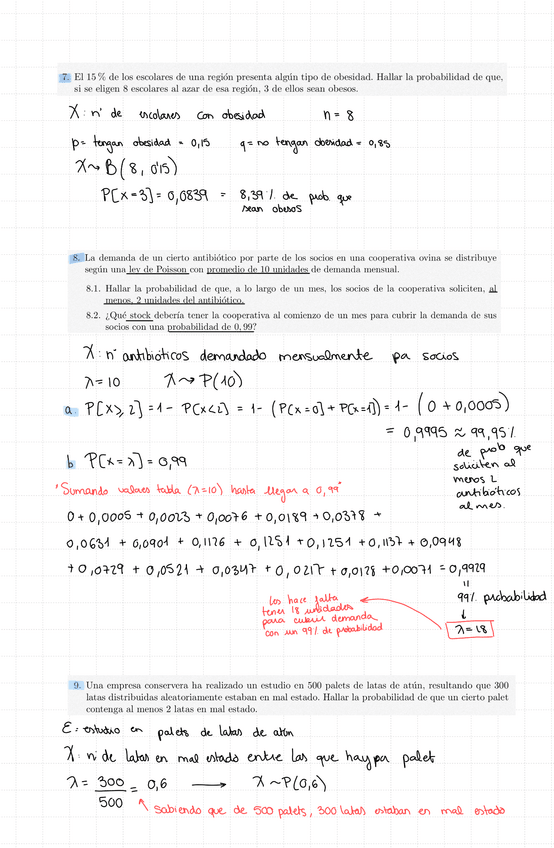 7. El 15 % de los escolares de una región presenta algún tipo de obesidad. Hallar la probabilidad de que,
si se eligen 8 escolares al azar de esa región, 3 de ellos sean obesos.
X: nº de escolares con obesidad n = 8
p = tengan obesidad = 0,15 q = no tengan obesidad = 0,85
X ~ B(8, 0'15)
P[X = 3] = 0,0839 = 8,39 % de prob que
sean obesos
8. La demanda de un cierto antibiótico por parte de los socios en una cooperativa ovina se distribuye
según una ley de Poisson con promedio de 10 unidades de demanda mensual.
8.1. Hallar la probabilidad de que, a lo largo de un mes, los socios de la cooperativa soliciten, al
menos, 2 unidades del antibiótico.
8.2. ¿Qué stock debería tener la cooperativa al comienzo de un mes para cubrir la demanda de sus
socios con una probabilidad de 0,99?
X: nº antibióticos demandado mensualmente pa socios
λ = 10 X ~ P(10)
a P[X ≥ 2] = 1 - P[X < 2] = 1 - (P[X = 0] + P[X = 1]) = 1 - (0 + 0,0005)
= 0,9995 ≈ 99,95 %
de prob que
soliciten al
menos 2
antibióticos
al mes.
b P[X = λ] = 0,99
"Sumando valores tabla (λ=10) hasta llegar a 0,99"
0 + 0,0005 + 0,0023 + 0,0076 + 0,0189 + 0,0378 +
0,0631 + 0,0901 + 0,1126 + 0,1251 + 0,1251 + 0,1137 + 0,0948
+ 0,0729 + 0,0521 + 0,0347 + 0,0217 + 0,0128 + 0,0071 = 0,9929
99% probabilidad
λ = 18
Les hace falta
tener 18 unidades
para cubrir demanda
con un 99% de probabilidad
9. Una empresa conservera ha realizado un estudio en 500 palets de latas de atún, resultando que 300
latas distribuidas aleatoriamente estaban en mal estado. Hallar la probabilidad de que un cierto palet
contenga al menos 2 latas en mal estado.
E: estudio en palets de latas de atún
X: nº de latas en mal estado entre las que hay por palet
λ = 300/500 = 0,6 → X ~ P(0,6)
Sabiendo que de 500 palets, 300 latas estaban en mal estado